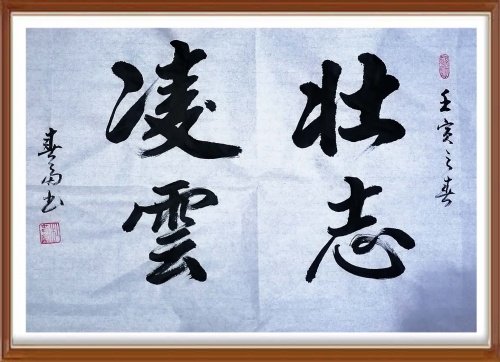 壬寅之春
壮志
凌雲
春雨书